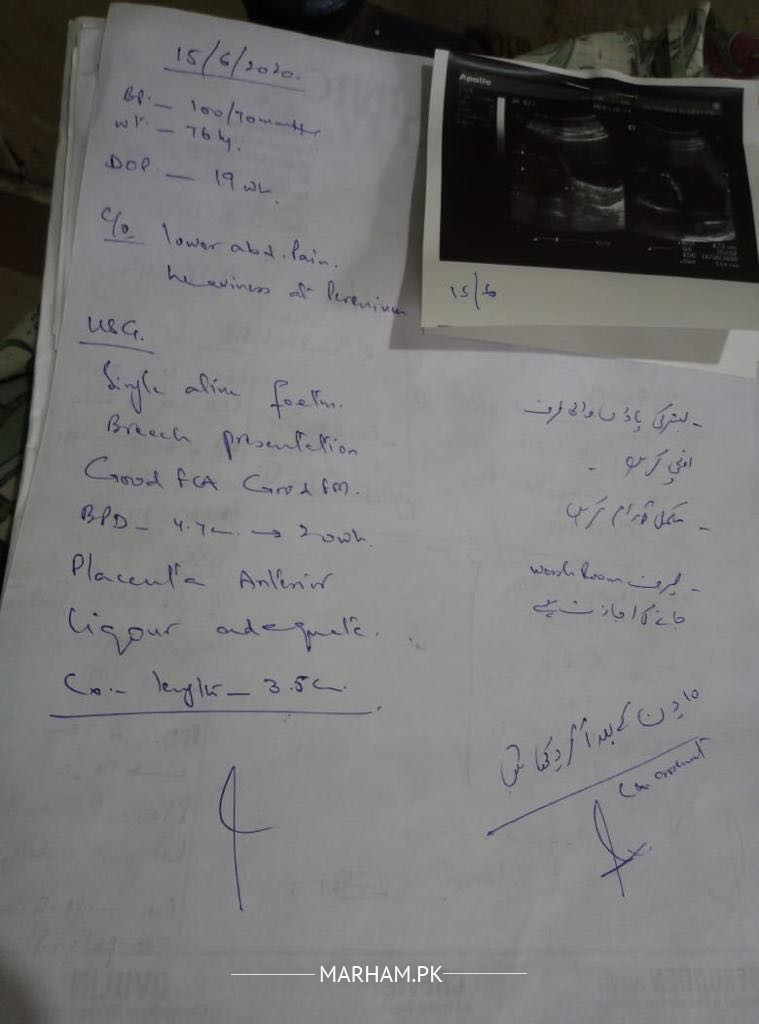 15/6/2020.
BP. — 100/70
wt. — 76 kg.
DOP — 19 wk.
C/o lower abd. Pain.
heaviness at Perenium
USG.
Single alive foetus.
Breech presentation
Good FCA Good FM.
BPD — 4.7cm. → 20wk.
Placenta Anterior
Liqour adequate.
Cx. — length — 3.5cm.
Apollo
15/6.
- بستر کی پاؤں والی طرف
اونچی کریں -
- مکمل آرام کریں
- صرف wash Room
جانے کی اجازت ہے
دن کے بعد آکر دکھائیں
MARHAM.PK